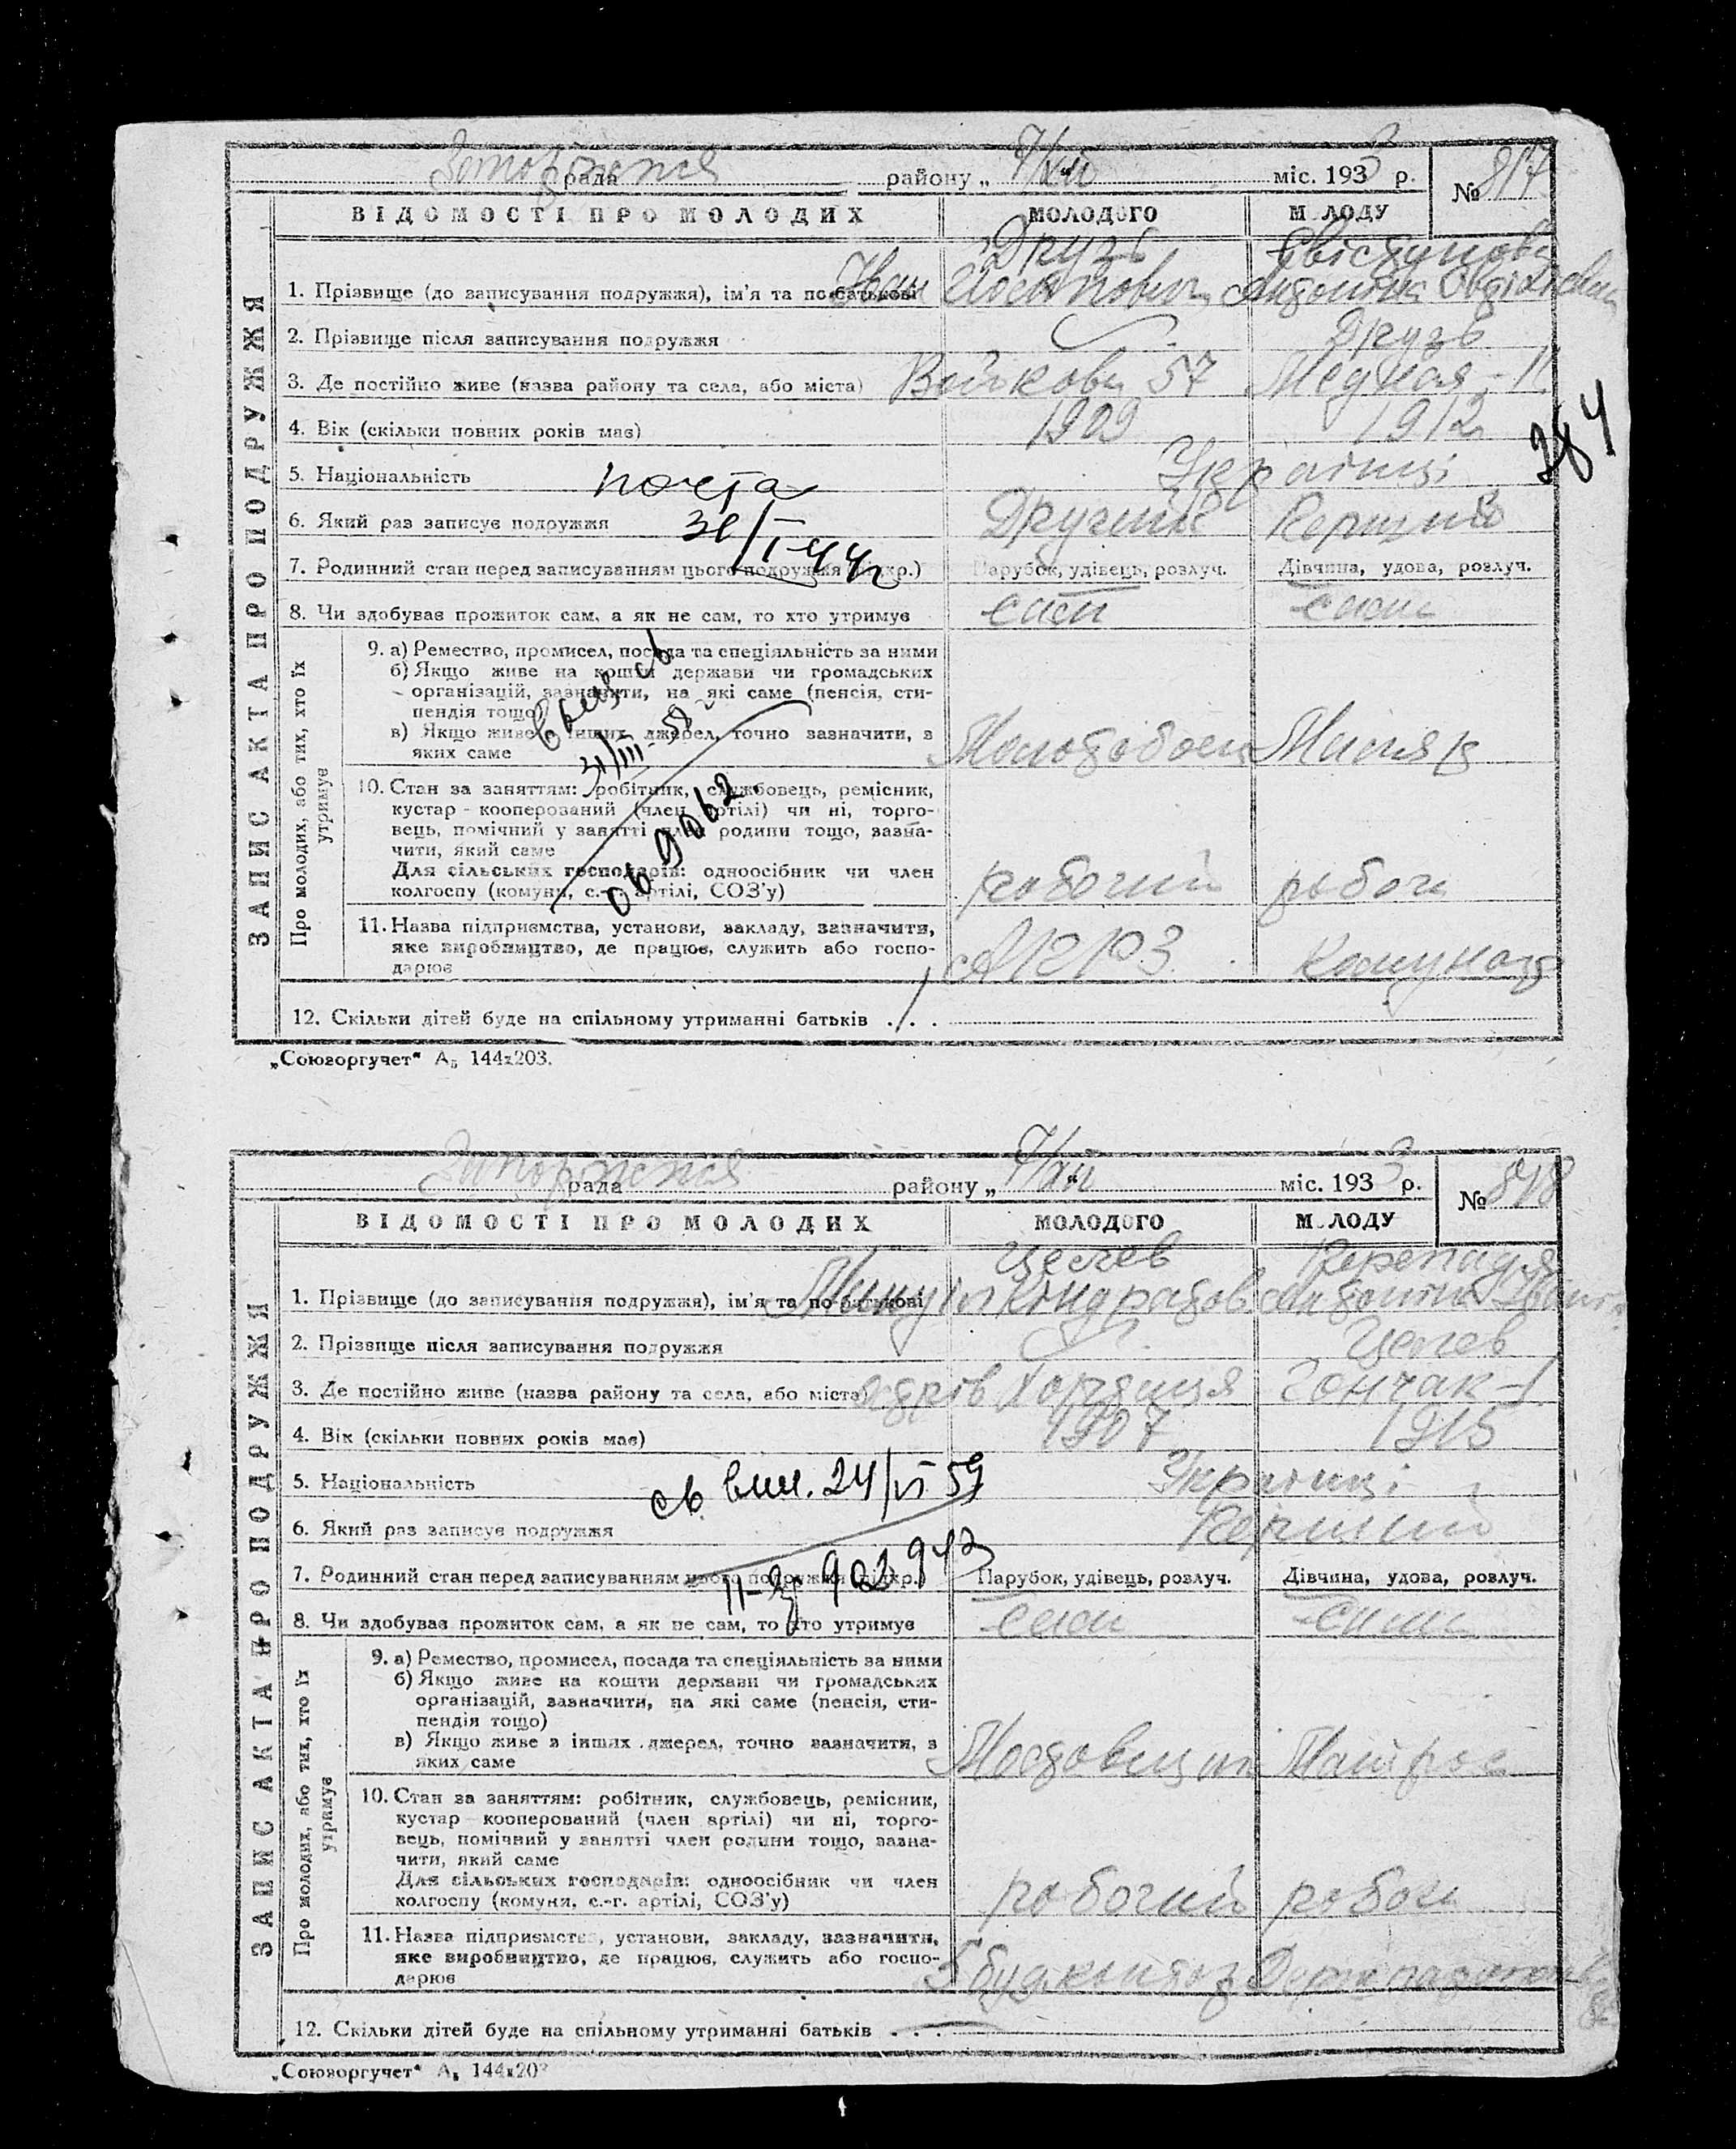 Запоріжжя рада району „ 7/VIII “ міс. 1933 р. № 817
ВІДОМОСТІ ПРО МОЛОДИХ МОЛОДОГО МОЛОДУ
Друзь
1. Прізвище (до записування подружжя), ім'я та по-батькові Іван
2. Прізвище після записування подружжя Друзь
3. Де постійно живе (назва району та села, або міста) 57 Медная - 11
4. Вік (скільки повних років має) 1909 1912
384
5. Національність Українці
почта
6. Який раз записує подружжя Другий Перший
31/I-44г
7. Родинний стан перед записуванням цього подружжя (підкр.) Парубок, удівець, розлуч. Дівчина, удова, розлуч.
8. Чи здобував прожиток сам, а як не сам, то хто утримує сам сама
ЗАПИС АКТА ПРО ПОДРУЖЖЯ
Про молодих, або тих, хто їх утримує
9. а) Ремество, промисел, посада та спеціяльність за ними
б) Якщо живе на кошти держави чи громадських
організацій, зазначити, на які саме (пенсія, сти-
пендія тощо)
в) Якщо живе з інших джерел, точно зазначити, з
яких саме Маляр
31/III-58
10. Стан за заняттям: робітник, службовець, ремісник,
кустар - кооперований (член артілі) чи ні, торго-
вець, помічний у занятті член родини тощо, зазна-
чити, який саме
Для сільських господарів: одноосібник чи член
колгоспу (комуни, с.-г. артілі, СОЗ'у) робочий робоч
11. Назва підприємства, установи, закладу, зазначити,
яке виробництво, де працює, служить або госпо-
дарює
12. Скільки дітей буде на спільному утриманні батьків . . .
„Союзоргучет“ А₅ 144х203.
Запоріжжя рада району „ 7/VIII “ міс. 1933 р. № 818
ВІДОМОСТІ ПРО МОЛОДИХ МОЛОДОГО МОЛОДУ
Целев
1. Прізвище (до записування подружжя), ім'я та по-батькові
2. Прізвище після записування подружжя Целев
3. Де постійно живе (назва району та села, або міста) острів Хортиця Гончак-1
4. Вік (скільки повних років має) 1907 1915
5. Національність Українці
св. вып. 24/VI 59
6. Який раз записує подружжя Перший
7. Родинний стан перед записуванням цього подружжя (підкр.) Парубок, удівець, розлуч. Дівчина, удова, розлуч.
8. Чи здобував прожиток сам, а як не сам, то хто утримує сам сама
ЗАПИС АКТА ПРО ПОДРУЖЖЯ
Про молодих, або тих, хто їх утримує
9. а) Ремество, промисел, посада та спеціяльність за ними
б) Якщо живе на кошти держави чи громадських
організацій, зазначити, на які саме (пенсія, сти-
пендія тощо)
в) Якщо живе з інших джерел, точно зазначити, з
яких саме
10. Стан за заняттям: робітник, службовець, ремісник,
кустар - кооперований (член артілі) чи ні, торго-
вець, помічний у занятті член родини тощо, зазна-
чити, який саме
Для сільських господарів: одноосібник чи член
колгоспу (комуни, с.-г. артілі, СОЗ'у) робочий робоч
11. Назва підприємства, установи, закладу, зазначити,
яке виробництво, де працює, служить або госпо-
дарює
12. Скільки дітей буде на спільному утриманні батьків . . .
„Союзоргучет“ А₅ 144х203